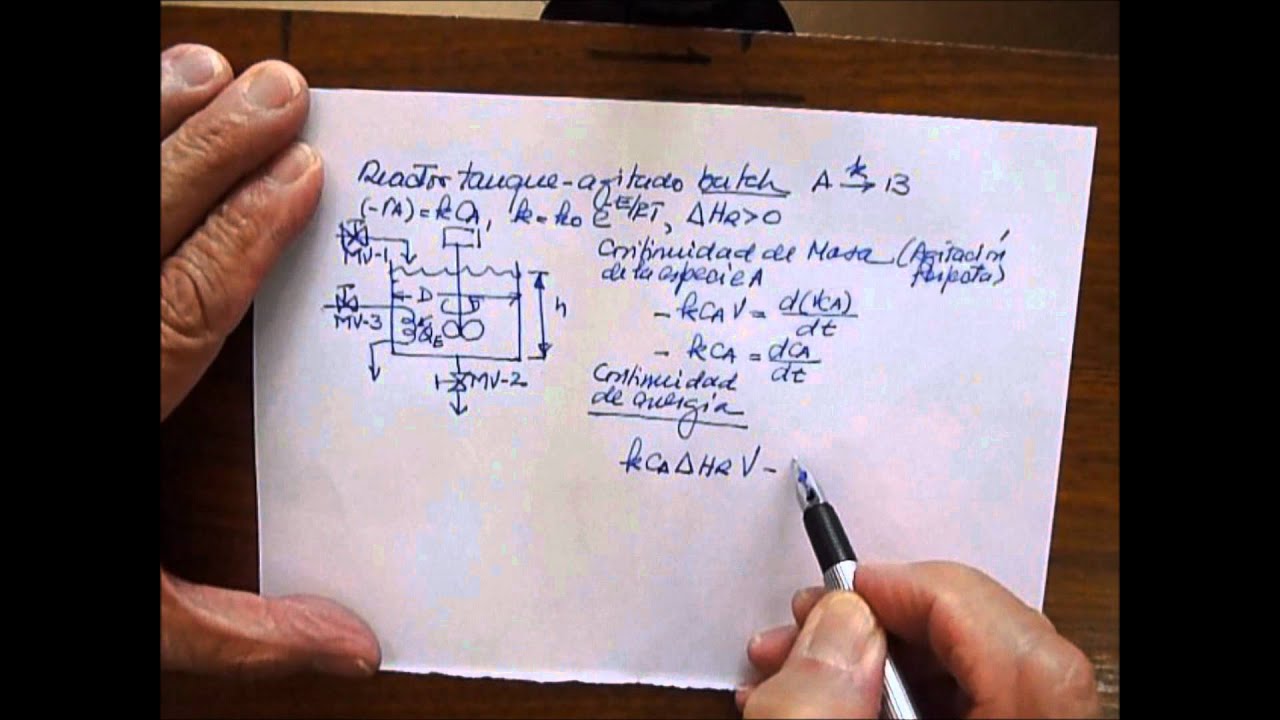 Reactor tanque-agitado batch A →k B
(-rA) = kCA, k = k0 e^-E/RT, ΔHR>0
MV-1
D
h
MV-3
QE
MV-2
Continuidad de Masa (Agitación
de la especie A perfecta)
- kCA V = d(VCA)/dt
- kCA = dCA/dt
Continuidad
de energía
kCA ΔHR V -